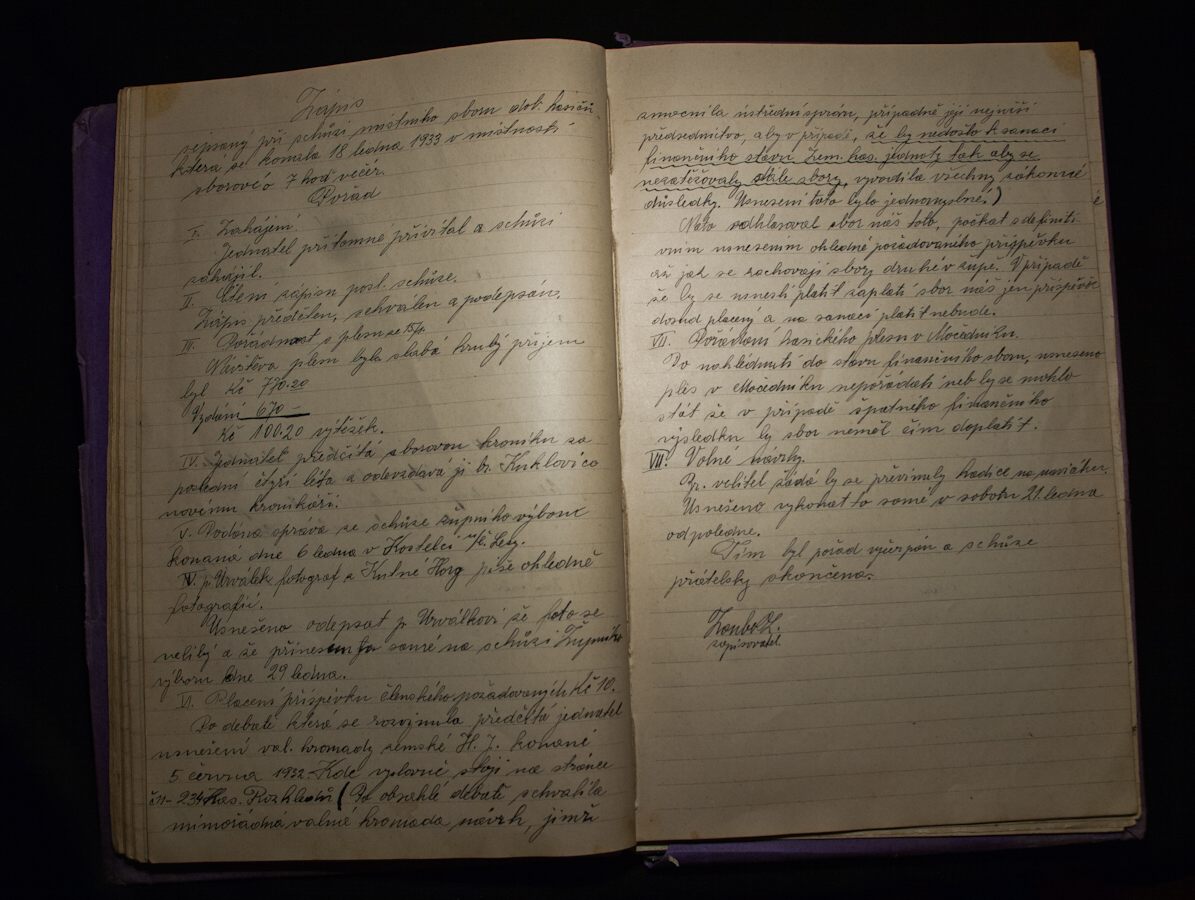 Zápis
sepsaný při schůzi místního sboru dob. hasičů,
která se konala 18 ledna 1933 v místnosti
sborové o 7 hod večer.
Pořad
I. Zahájení.
Jednatel přítomné přivítal a schůzi
zahájil.
II. Čtení zápisu posl. schůze.
Zápis předčten, schválen a podepsán.
III. s plesu ze 15/1.
Návštěva plesu byla slabá hrubý příjem
byl Kč 770.20
Vydání 670 –
Kč 100.20 výtěžek.
IV. Jednatel předčítá sborovou kroniku za
poslední čtyři léta a odevzdává ji br. Kuklovi co
novému kronikáři.
V. Podána zpráva ze schůze župního výboru
konané dne 6 ledna v Kostelci n/Č. Lesy.
IV. p. Urválek fotograf z Kutné Hory píše ohledně
fotografií.
Usnešeno odepsat p. Urválkovi že foto se
nelibý a že přinesem jej samé na schůzi Župního
výboru dne 29 ledna.
VI. Placení příspěvku členského požadovaných Kč 10.
Po debatě která se rozvinula předčítá jednatel
usnešení val. hromady zemské H. J. konané
5 června 1932. Kde výslovně stojí na stránce
čís– 234 Has. Rozhledů (Po obsáhlé debatě schválila
mimořádná valná hromada návrh, jimž
zmocnila ústřední správu, případně její nejužší
předsednictvo, aby v případě, že by nedošlo k sanaci
finančního stavu Zem. has. jednoty tak aby se
nezatěžovaly stále sbory, vyvodila všechny zákonné
důsledky. Usnesení toto bylo jednomyslné.)
Nato odhlasoval sbor náš toto, počkat s definiti-
vním usnesením ohledně požadovaného příspěvku
až jak se zachovají sbory druhé v župě. V případě
že by se usnesli platit zaplatí sbor náš jen příspěvek
dosud placený a na sanaci platit nebude.
VII. Pořádání hasického plesu v Močedníku.
Po nahlédnutí do stavu finančního sboru, usneseno
ples v Močedníku nepořádati neb by se mohlo
stát že v případě špatného finančního
výsledku by sbor neměl čím doplatit.
VIII. Volné návrhy.
Br. velitel žádá by se převinuly hadice na navíáku.
Usnešeno vykonat to samé v sobotu 21. ledna
odpoledne.
Tím byl pořad vyčerpán a schůze
přátelsky skončena.
zapisovatel.